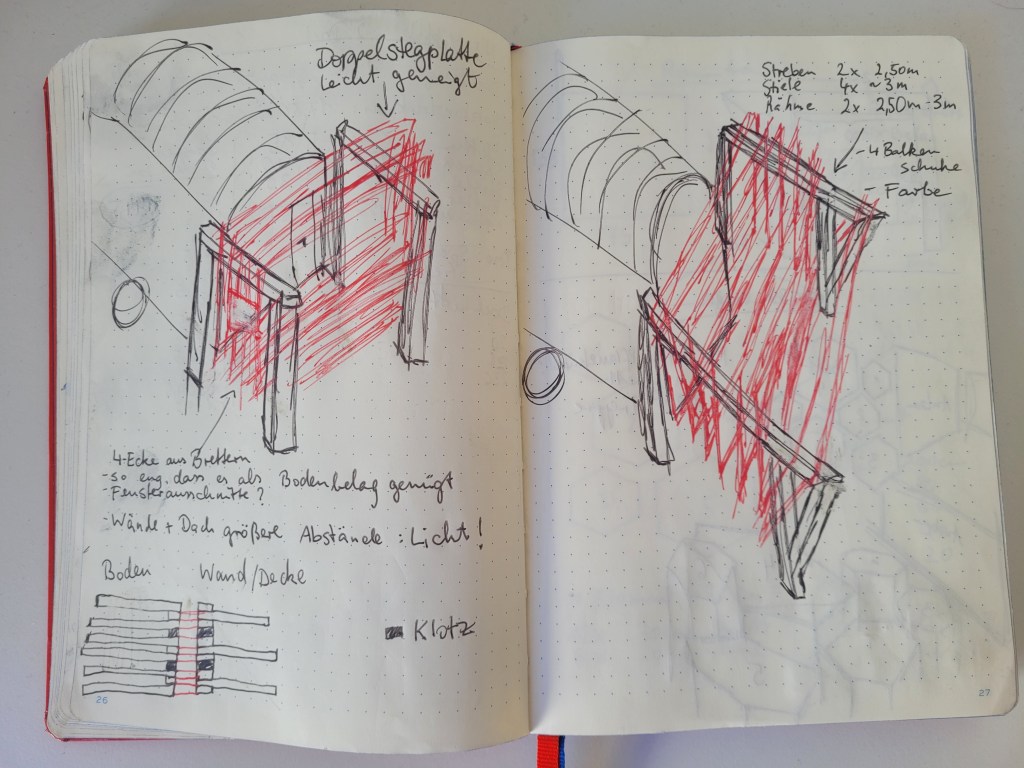 Doppelstegplatte
leicht geneigt
4-Ecke aus Brettern
- so eng, dass es als Bodenbelag genügt
- Fensterausschnitte?
- Wände + Dach größere Abstände: Licht!
Boden Wand/Decke
Klotz
26
Streben 2x 2,50m
Stiele 4x ~3m
Rähme 2x 2,50m-3m
- 4 Balken
schuhe
- Farbe
27